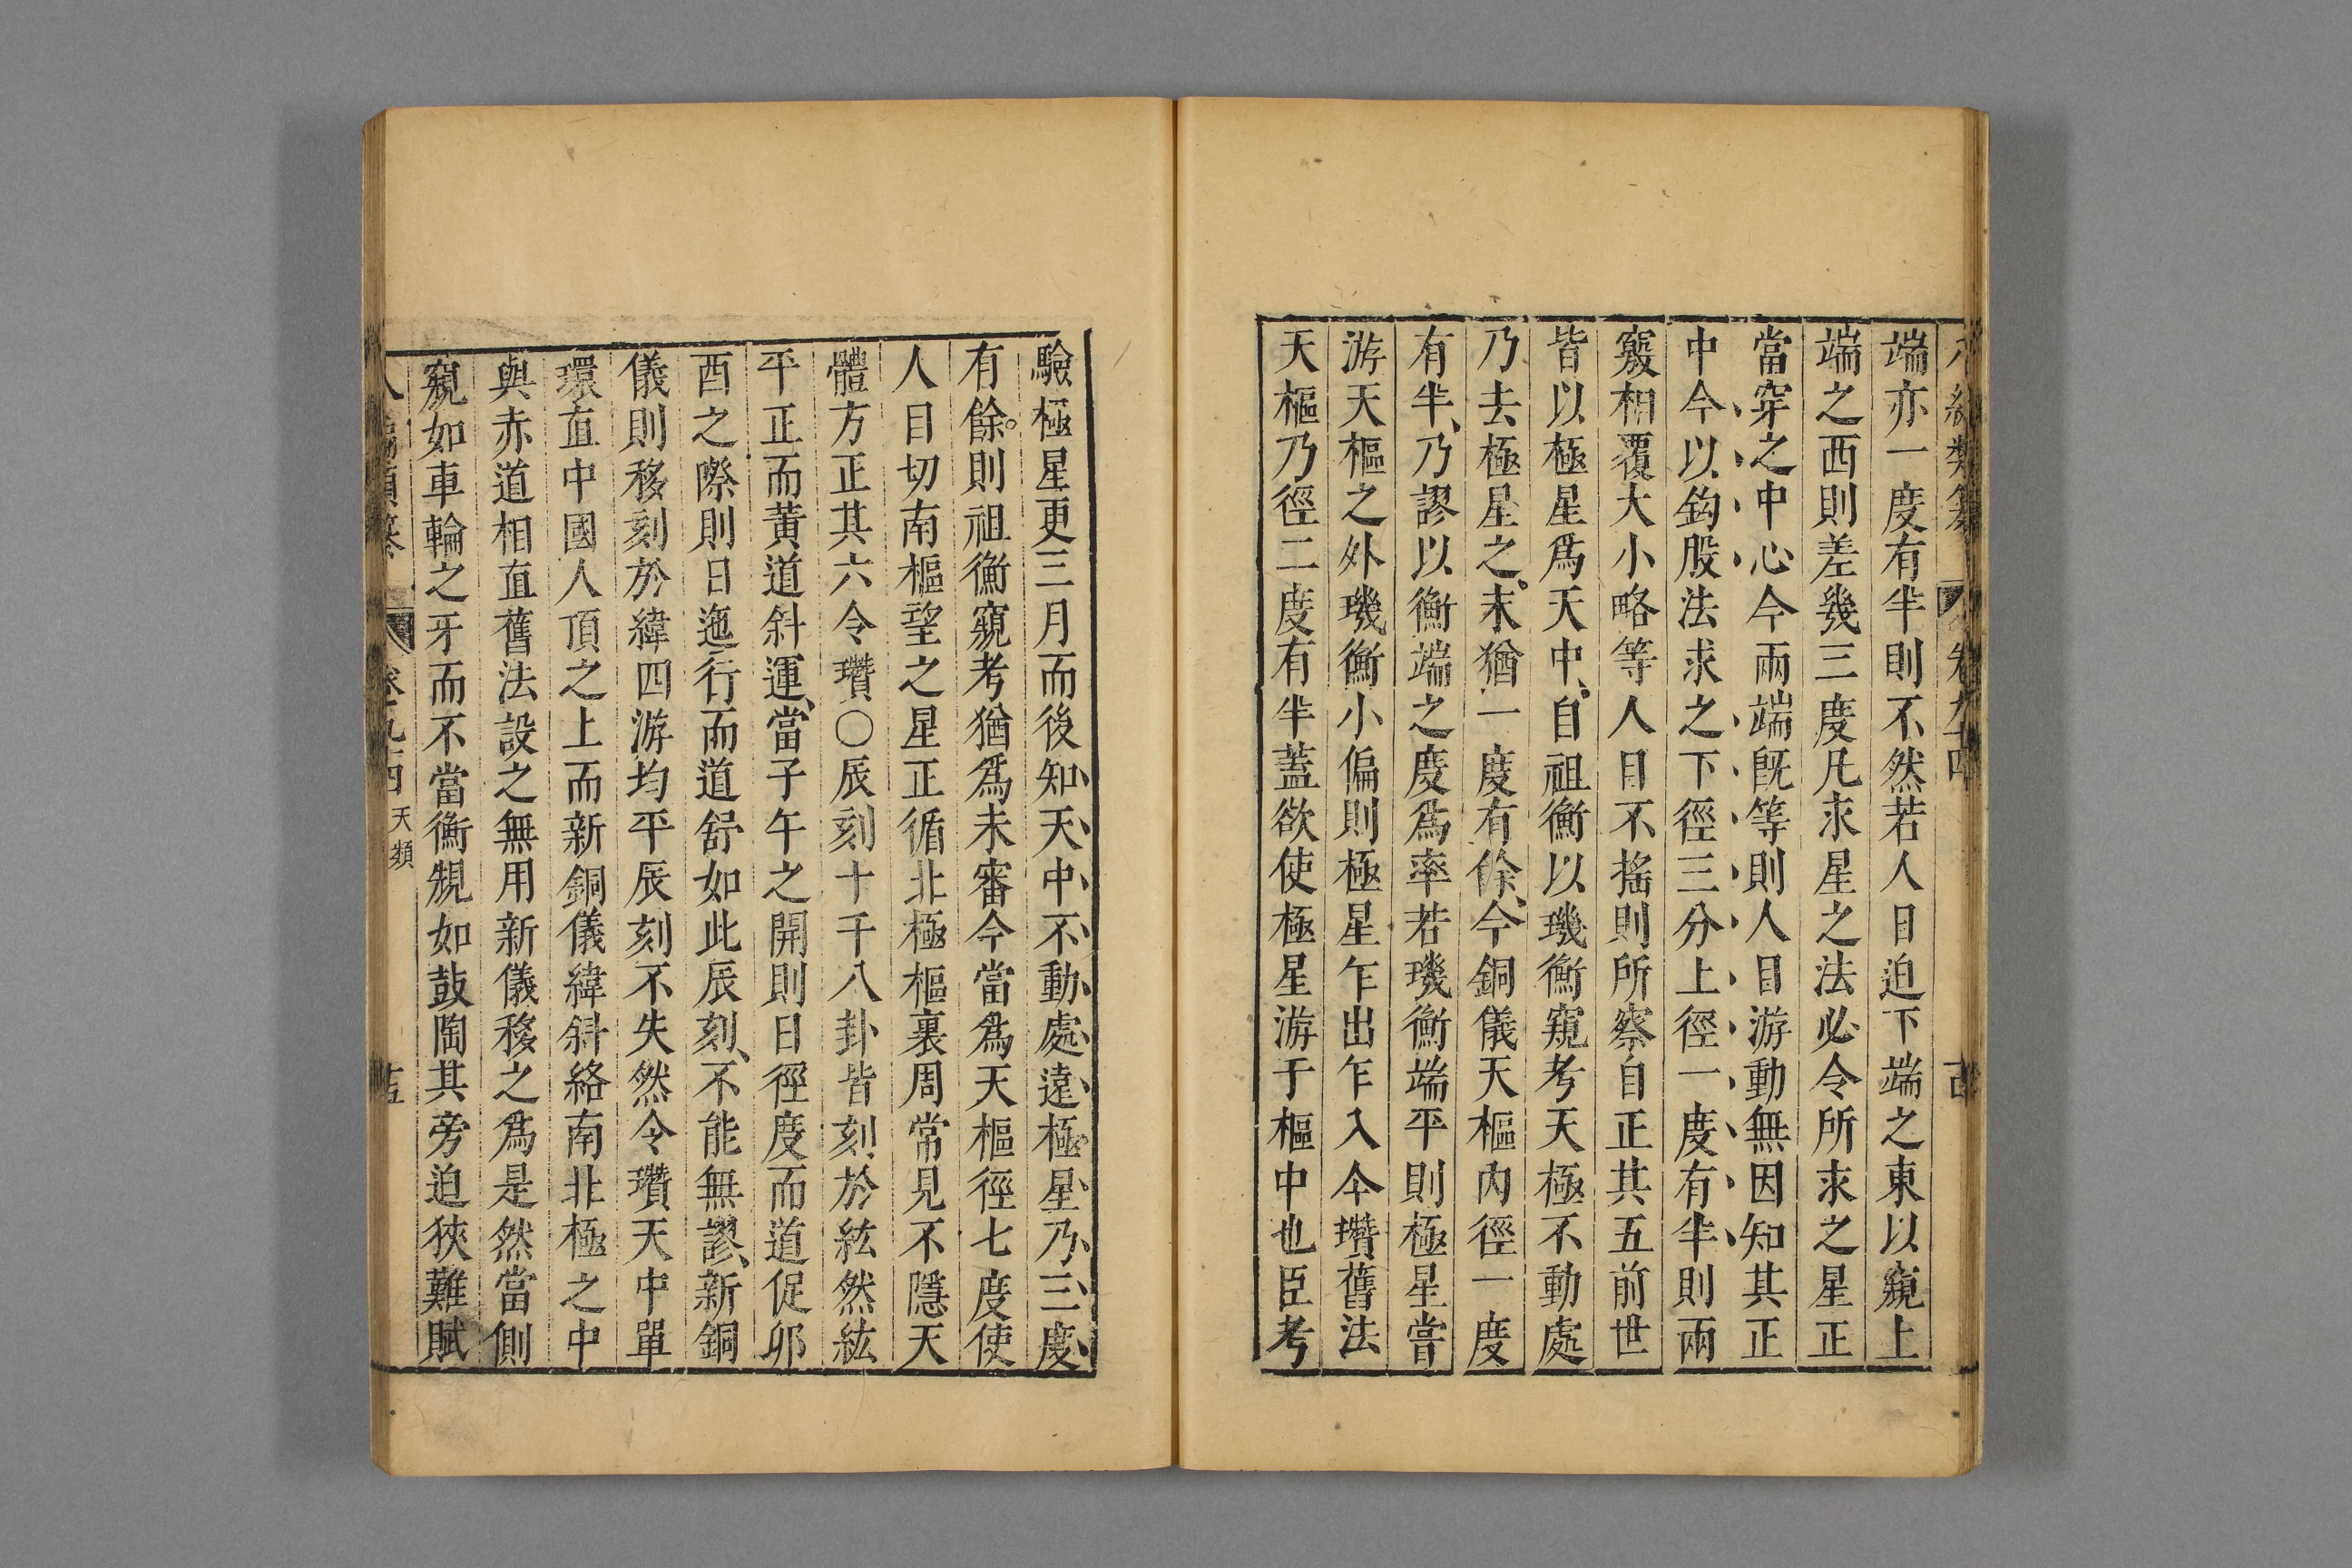 端亦一度有半則不然若人目迫下端之東以窺上
端之西則差幾三度凡求星之法必令所求之星正
當穿之中心今兩端既等則人目游動無因知其正
中今以鈎股法求之下徑三分上徑一度有半則兩
竅相覆大小略等人目不搖則所察自正其五前世
皆以極星爲天中自祖衡以璣衡窺考天極不動處
乃去極星之末猶一度有餘今銅儀天樞內徑一度
有半乃謬以衡端之度爲率若璣衡端平則極星嘗
游天樞之外璣衡小偏則極星乍出乍入今瓚舊法
天樞乃徑二度有半蓋欲使極星游于樞中也臣考
驗極星更三月而後知天中不動處遠極星乃三度
有餘則祖衡窺考猶爲未審今當爲天樞徑七度使
人目切南樞望之星正循北極樞裏周常見不隱天
體方正其六令瓚○辰刻十干八卦皆刻於紘然紘
平正而黃道斜運當子午之開則日徑度而道促卯
酉之際則日迤行而道舒如此辰刻不能無謬新銅
儀則移刻於緯四游均平辰刻不失然令瓚天中單
環直中國人頂之上而新銅儀緯斜絡南北極之中
與赤道相直舊法設之無用新儀移之爲是然當側
窺如車輪之牙而不當衡規如鼓陶其旁迫狹難賦
卷九十四 天類